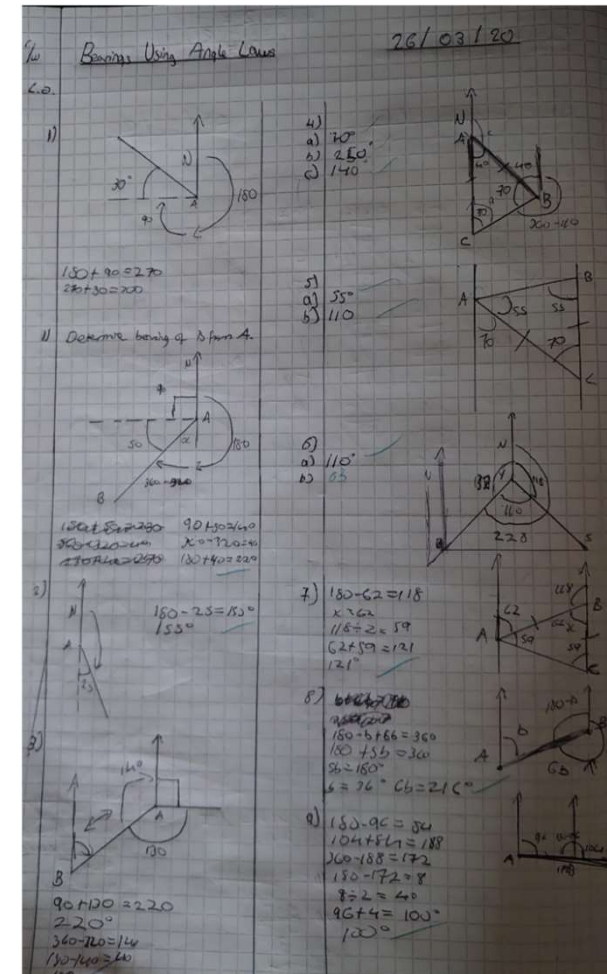 C/w Bearings Using Angle Laws 26/03/20
L.O.
1)
N
30°
A
180
90
180+90=270
270+30=300
1) Determine bearing of B from A.
N
A
50
x
180
B
90+50=140
180+40=220
2)
N
A
25
180-25=155°
155°
3)
140°
A
130
B
90+130=220
220°
180-140=40
4)
a) 70°
b) 250°
c) 140°
N
A
40
40
70
B
C
360-40
5)
a) 55°
b) 110
A
B
55
55
70
70
C
6)
a) 110°
b)
N
118
110
228
S
7) 180-62=118
x=62
118÷2=59
62+59=121
121°
118
62
B
x
A
59
59
C
8)
180-b+6b=360
180+5b=360
5b=180°
b=36° 6b=216°
180-b
b
B
A
6b
9) 180-96=84
104+84=188
360-188=172
180-172=8
8÷2=40
96+4=100°
100°
96
104
A